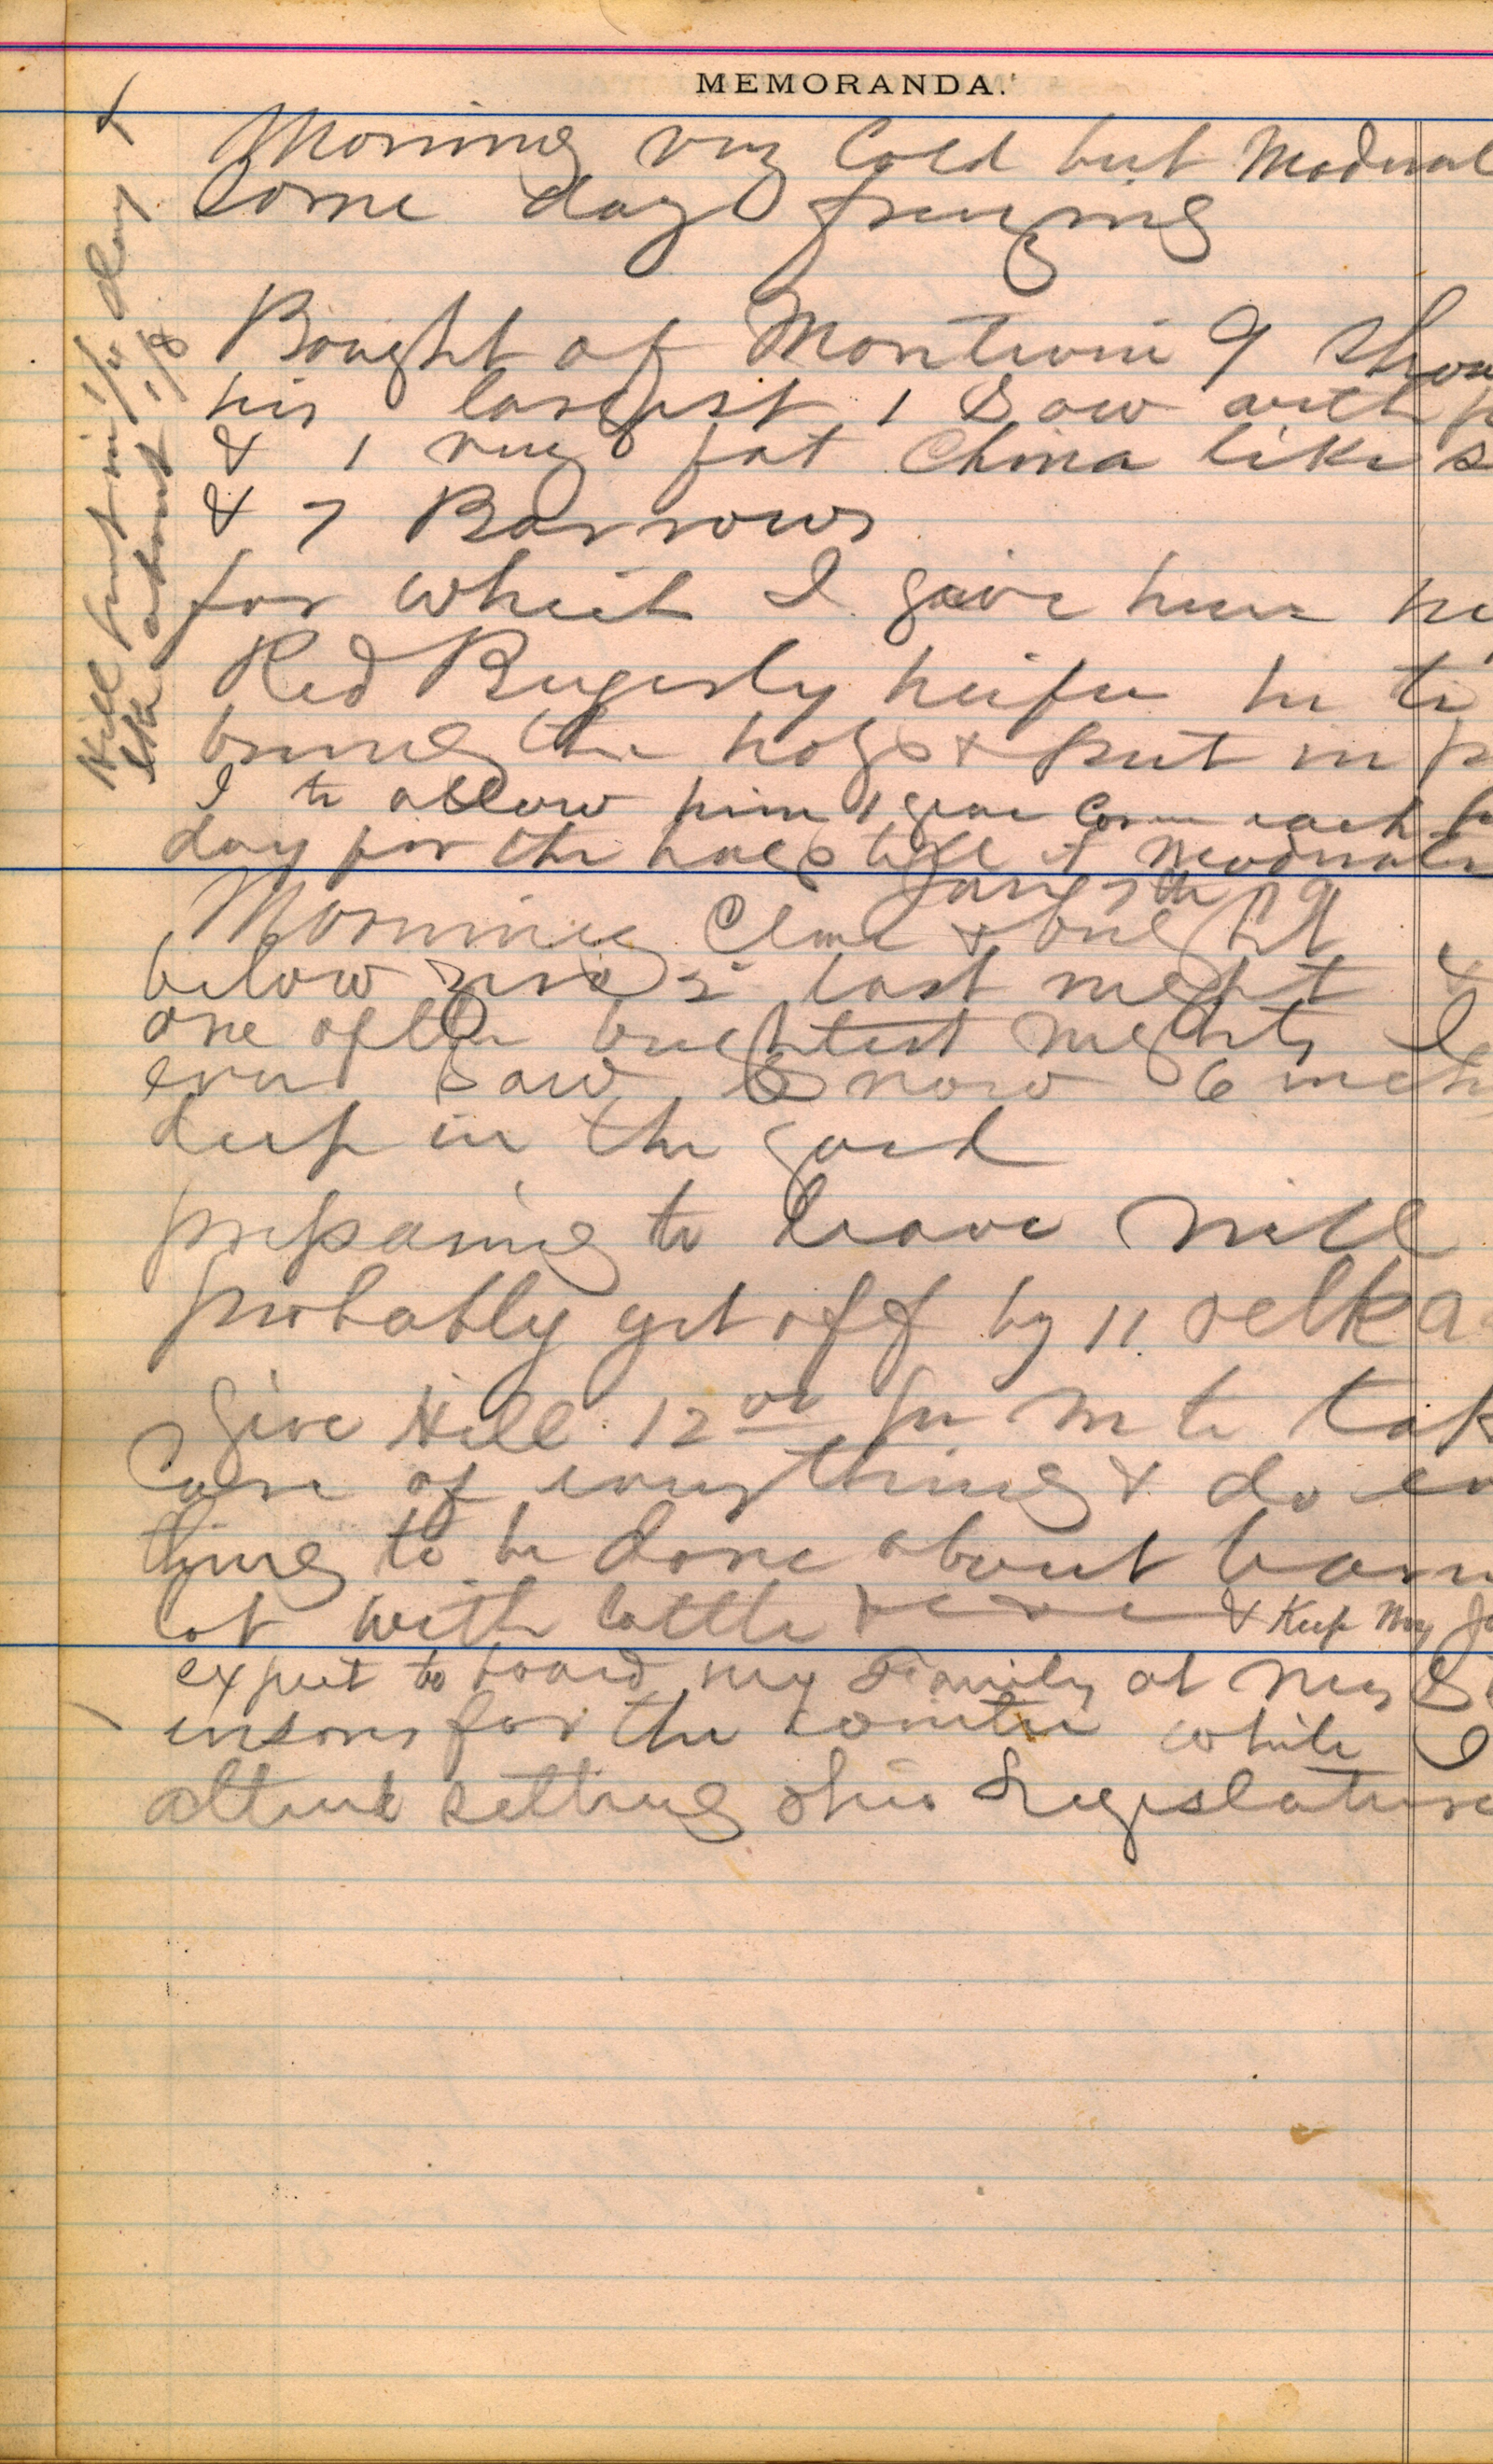 MEMORANDA.
Morning very Cold but Moderat
some day freezing
Bought of Montwine 9 Shoa
his largest 1 Sow with p
& 1 very fat China like s
& 7 Barrows
for which I gave him
Red heifer he to
bring the hogs & put in p
I to allow him 1 Corn each
day for the hogs till it Moderates
Jany 7th
Morning Clear & bright &
below zero last night
one of the brightest nights I
ever Saw Snow 6 inch
deep in the yard
preparing to leave will
probably get off by 11 oclk a
Give Hill 12 00 per M to tak
Care of everything & do ev
thing to be done about barn
lot with Cattle & Keep my
expect to board my Family at Mrs
for the winter while I
attend setting Ohio Legislature
Hill put in 1/2 day
Elk about 1/8